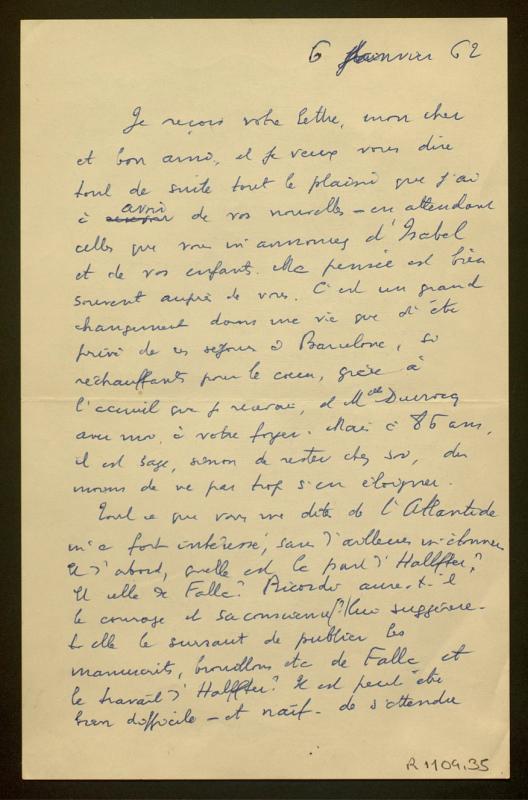 6 Janvier 62
Je reçois votre lettre, mon cher
et bon ami, et je veux vous dire
tout de suite tout le plaisir que j'ai
à avoir de vos nouvelles – en attendant
celles que vous m'annoncez d'Isabel
et de vos enfants. Ma pensée est bien
souvent auprès de vous. C'est un grand
changement dans une vie que d'être
privé de ces séjours à Barcelone, si
réchauffants pour le cœur, grâce à
l'accueil que je recevais, et Mlle Ducrocq
avec moi, à votre foyer. Mais à 86 ans,
il est sage, sinon de rester chez soi, du
moins de ne pas trop s'en éloigner.
Tout ce que vous me dites de l'Atlantide
m'a fort intéressé, sans d'ailleurs m'étonner.
Et d'abord, quelle est la part d'Halffter?
Et celle de Falla? Ricordi aura-t-il
le courage et sa conscience (?) lui suggérera-
t-elle le sursaut de publier les
manuscrits, brouillons etc de Falla et
le travail d'Halffter? Il est peut-être
bien difficile – et naïf – de s'attendre
R 1109,35